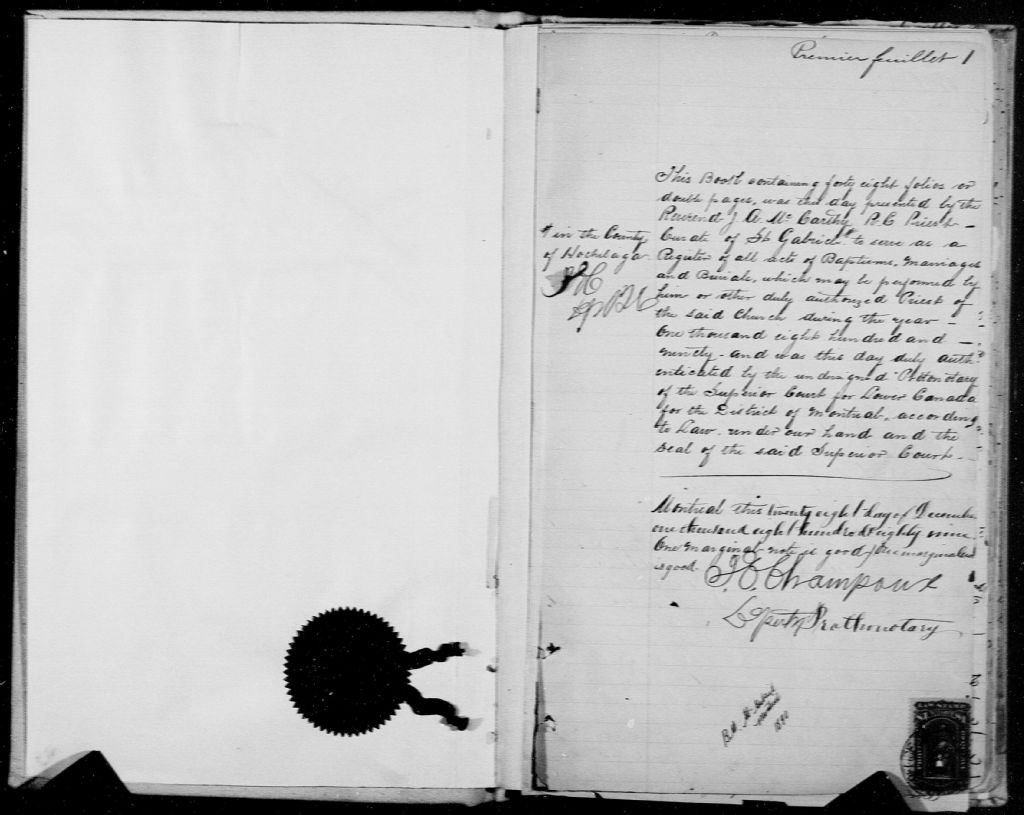 Premier feuillet 1
This Book containing forty eight folios or
double pages, was this day presented by the
Reverend J. A. Mc Carthy R.C. Priest -
Curate of St Gabriel # to serve as a
Register of all acts of Baptisms, Marriages
and Burials, which may be performed by
him or other duly authorized Priest of
the said Church during the year -
One thousand eight hundred and -
ninety - and was this day duly auth-
enticated by the undersigned Protonotary
of the Superior Court for Lower Canada
for the District of Montreal, according
to Law, under our hand and the
Seal of the said Superior Court -
# in the County
of Hochelaga
Montreal this twenty eight day of December
one thousand eight hundred & eighty nine
One marginal note is good / One marginal
is good
Champoux
Deputy Prothonotary
1890
LAW STAMP